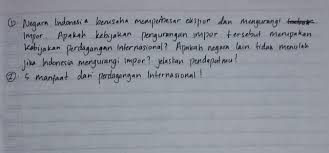 ① Negara Indonesia berusaha memperbesar ekspor dan mengurangi
Impor. Apakah kebijakan pengurangan impor tersebut merupakan
Kebijakan perdagangan Internasional? Apakah negara lain tidak menolak
jika Indonesia mengurangi impor? jelaskan pendapatmu!
② 5 manfaat dari perdagangan Internasional!